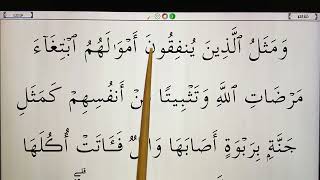 وَمَثَلُ ٱلَّذِينَ يُنفِقُونَ أَمْوَٰلَهُمُ ٱبْتِغَآءَ
مَرْضَاتِ ٱللَّهِ وَتَثْبِيتًا مِّنْ أَنفُسِهِمْ كَمَثَلِ
جَنَّةٍۭ بِرَبْوَةٍ أَصَابَهَا وَابِلٌ فَـَٔاتَتْ أُكُلَهَا